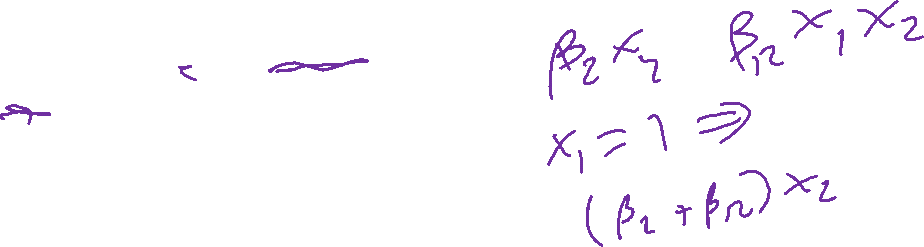 β₂x₂ β₁₂x₁x₂
x₁ = 1 ⇒
(β₂ + β₁₂)x₂